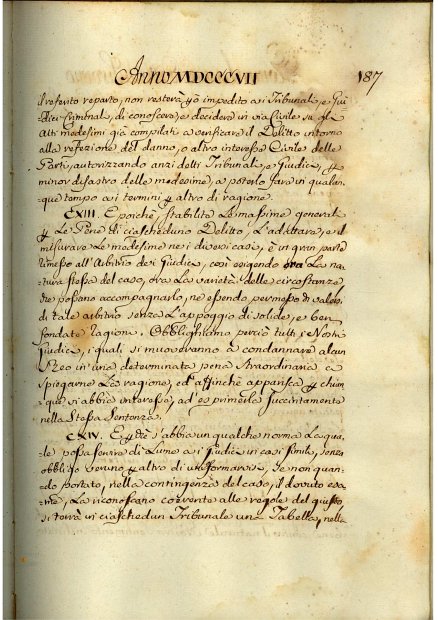 Anno MDCCCVII
187
il referito reparto, non resterà p̱ò impedito ai Tribunali, e Giu
dici Criminali, di conoscere, e decidere in via Civile su gli
Atti medesimi già compilati a verificare il Delitto intorno
alla refezione del danno, o altro interesse Civile delle
Parti, autorizzando anzi detti Tribunali, e Giudici, p̱
minor disastro delle medesime, a poterlo fare in qualun
que tempo ai termini p̱ altro di ragione.
CXIII. E poichè, stabilite Le massime generali,
p̱ Le Pene di ciascheduno Delitto, L'adattare, e il
misurare Le medesime nei diversi casi, è in gran parte
rimesso all'Arbitrio dei Giudici, così esigendo ora La na
tura stessa del caso, ora La varietà delle circostanze
che possano accompagnarlo, ne essendo permesso di valersi
di tale arbitrio senza L'appoggio di solide, e ben
fondate ragioni, Obblighiamo perciò tutti i Nostri
Giudici, i quali si muoveranno a condannare alcun
Reo in una determinata pena straordinaria a
spiegarne La ragione, ed affinchè apparisca p̱ chiun
que vi abbia interesse, ad esprimerla succintamente
nella stessa Sentenza.
CXIV. E p̱chè s'abbia un qualche norma La qua
le possa servir di Lume ai Giudici in casi simili, senza
obbligo veruno p̱ altro di uniformarvisi, se non quan
do portato, nella contingenza del caso, il dovuto esa
me, La riconoscano coerente alle regole del giusto
si terrà in ciaschedun Tribunale una Tabella, nella